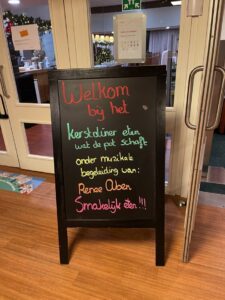 Welkom
bij het
Kerstdiner eten
wat de pot schaft
onder muzikale
begeleiding van:
Renee
Smakelijk eten!!!